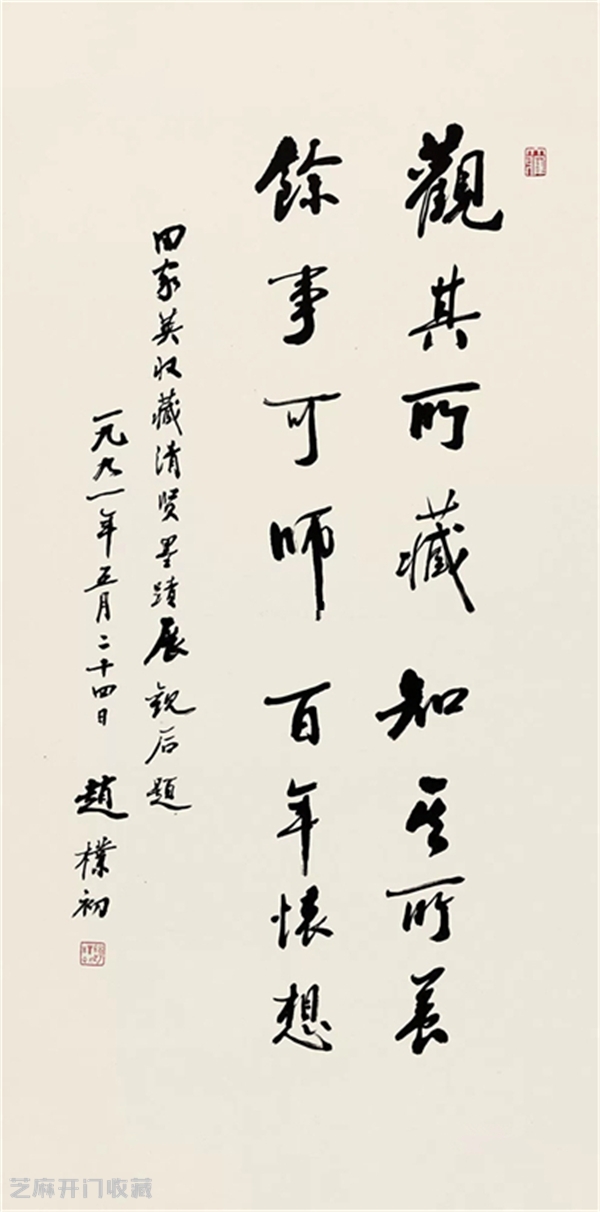 觀其所藏知其所养
餘事可師百年懷想
田家英收藏清贤墨蹟展觀后題
一九九一年五月二十四日
趙樸初
芝麻开门收藏